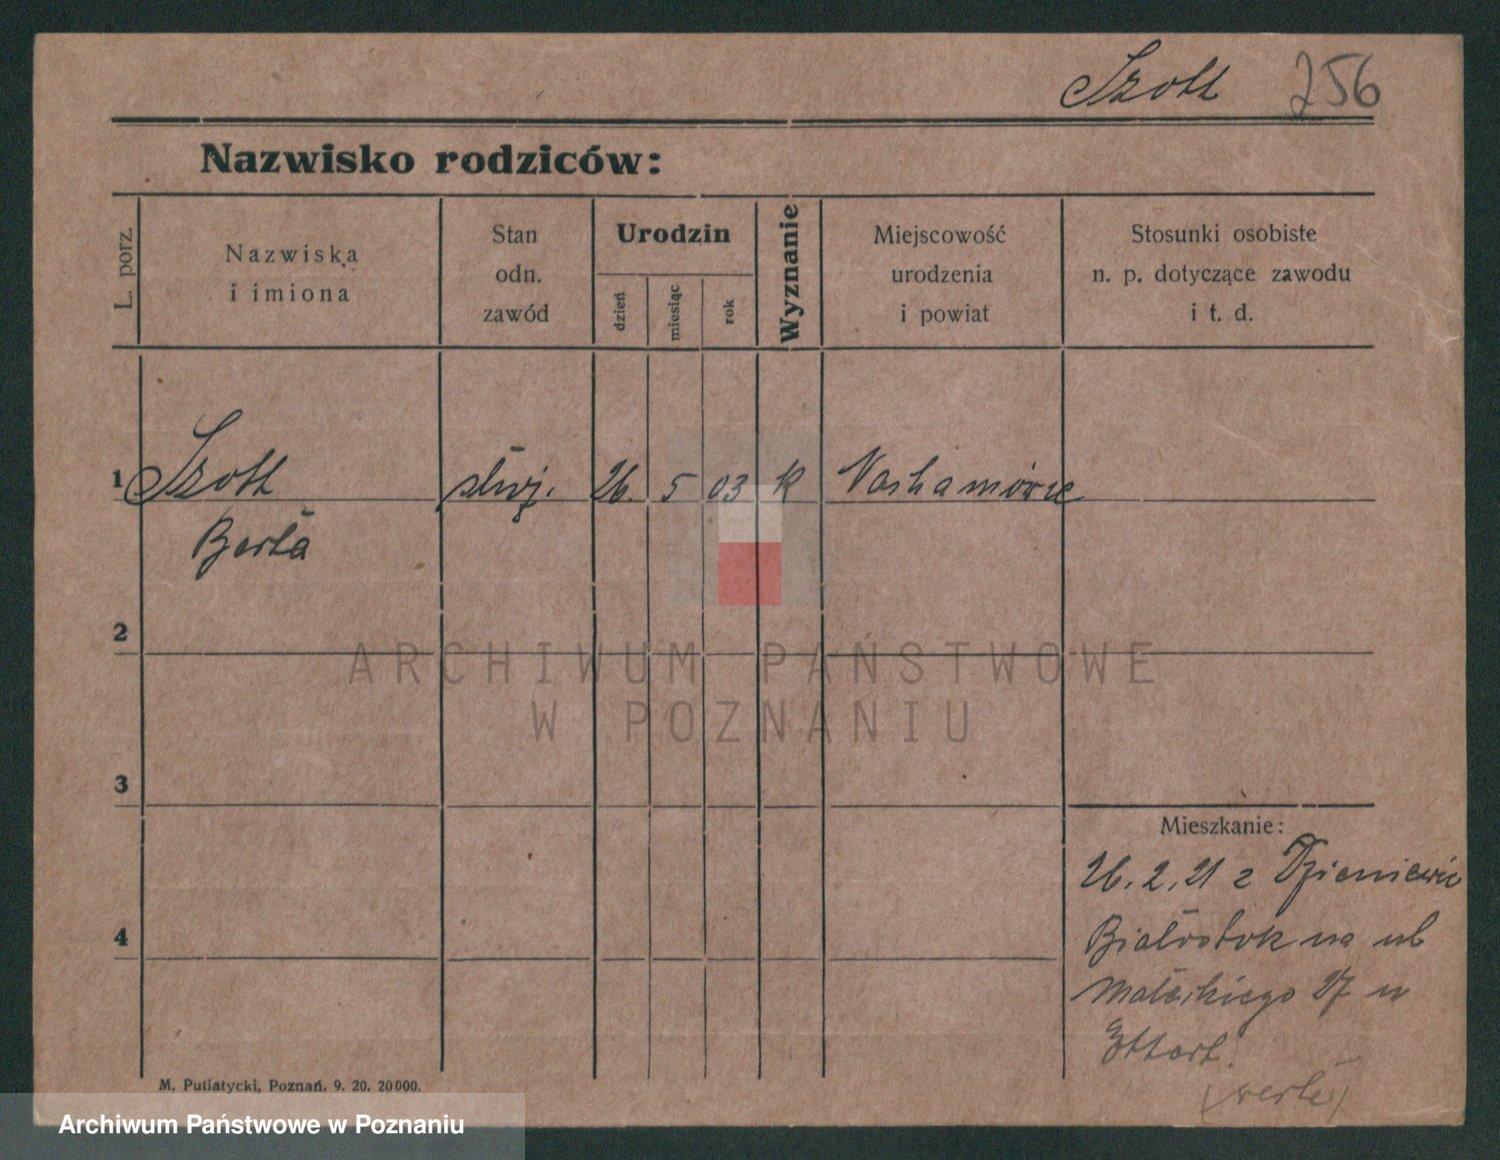 Szott 256
Nazwisko rodziców:
L. porz.
Nazwiska
i imiona
Stan
odn.
zawód
Urodzin
dzień
miesiąc
rok
Wyznanie
Miejscowość
urodzenia
i powiat
Stosunki osobiste
n. p. dotyczące zawodu
i t. d.
1 Szott służ. 26. 5 03 k
Berta
2
ARCHIWUM PAŃSTWOWE
W POZNANIU
3
Mieszkanie:
26. 2. 21 z
4
Białostok na ul
Małeckiego 27 u
M. Putiatycki, Poznań. 9. 20. 20000.
Archiwum Państwowe w Poznaniu